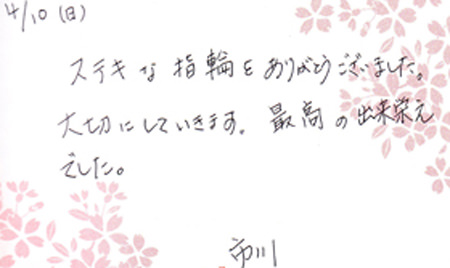 4/10（日）
ステキな指輪をありがとうございました。
大切にしていきます。最高の出来栄え
でした。
市川